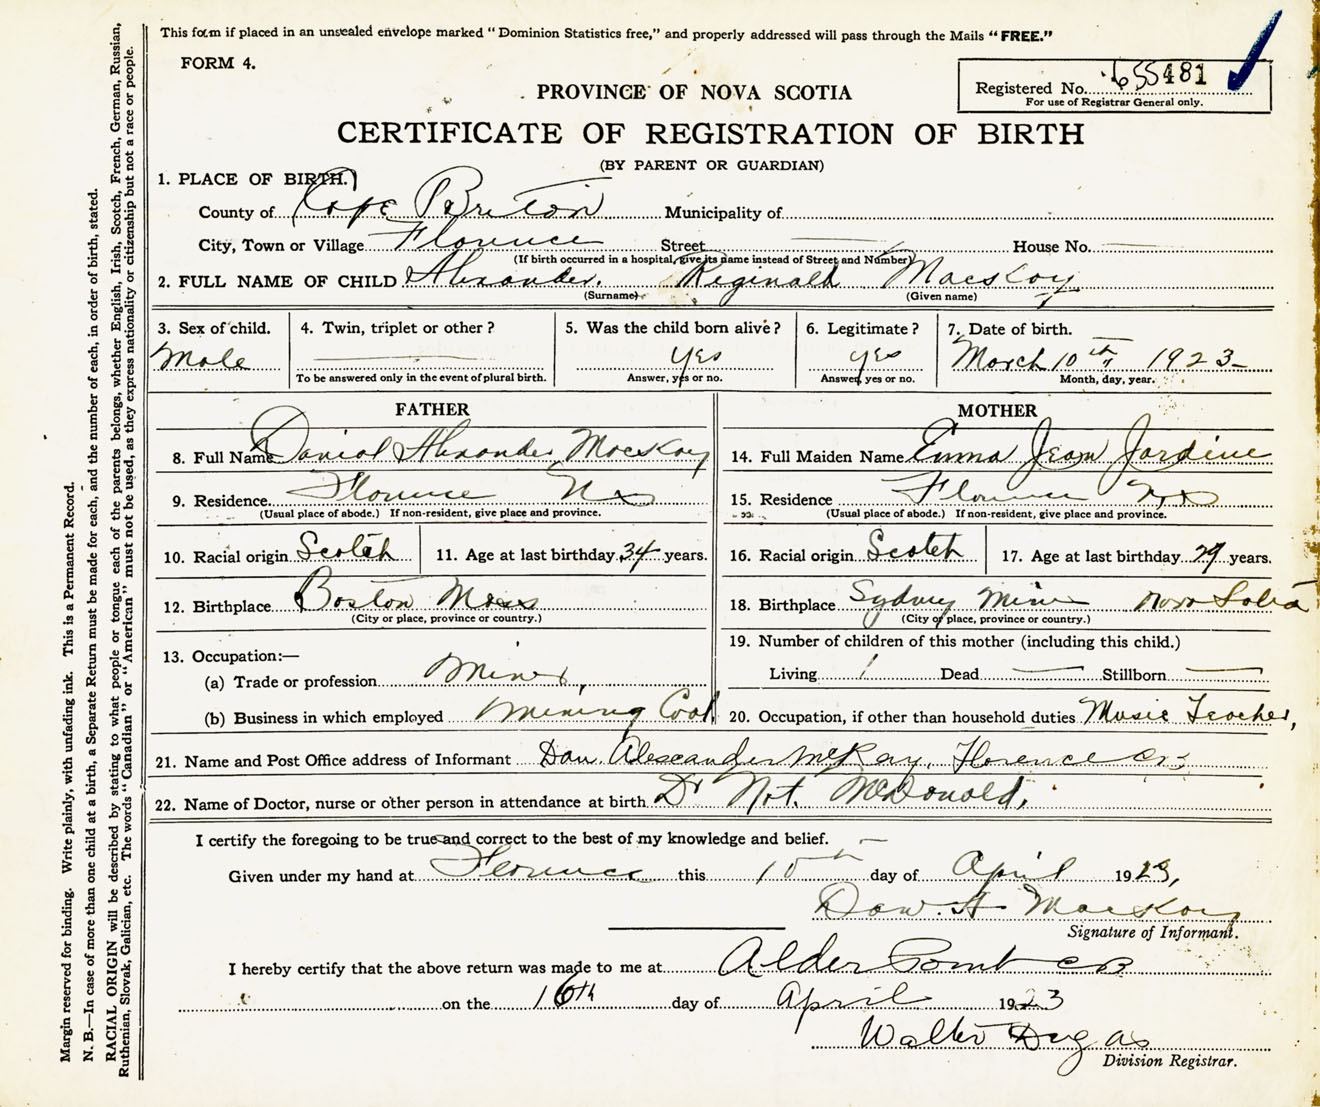 This form if placed in an unsealed envelope marked "Dominion Statistics free," and properly addressed will pass through the Mails "FREE."
FORM 4.
Registered No. 655481
For use of Registrar General only.
PROVINCE OF NOVA SCOTIA
CERTIFICATE OF REGISTRATION OF BIRTH
(BY PARENT OR GUARDIAN)
1. PLACE OF BIRTH.
County of Cape Breton Municipality of
City, Town or Village Florence Street House No.
(If birth occurred in a hospital, give its name instead of Street and Number)
2. FULL NAME OF CHILD Alexander. Reginald MacsKay
(Surname) (Given name)
3. Sex of child. 4. Twin, triplet or other? 5. Was the child born alive? 6. Legitimate? 7. Date of birth.
Male yes yes March 10th 1923
To be answered only in the event of plural birth. Answer, yes or no. Answer, yes or no. Month, day, year.
FATHER
8. Full Name Daniel Alexander MacsKay
9. Residence Florence NS
(Usual place of abode.) If non-resident, give place and province.
10. Racial origin Scotch 11. Age at last birthday 34 years.
12. Birthplace Boston Mass
(City or place, province or country.)
13. Occupation:—
(a) Trade or profession Miner,
(b) Business in which employed Mining Coal
MOTHER
14. Full Maiden Name Emma Jean Jardine
15. Residence Florence NS
(Usual place of abode.) If non-resident, give place and province.
16. Racial origin Scotch 17. Age at last birthday 29 years.
18. Birthplace Sydney Mines Nova Sotia
(City or place, province or country.)
19. Number of children of this mother (including this child.)
Living 1 Dead Stillborn
20. Occupation, if other than household duties Music Teacher,
21. Name and Post Office address of Informant Dan. Alexander McKay, Florence CB
22. Name of Doctor, nurse or other person in attendance at birth Dr McDonald,
I certify the foregoing to be true and correct to the best of my knowledge and belief.
Given under my hand at Florence this 10th day of April 1923,
Dan. A MacKay
Signature of Informant.
I hereby certify that the above return was made to me at Alder Point CB
on the 16th day of April 1923
Walter Dugas
Division Registrar.
Margin reserved for binding. Write plainly, with unfading ink. This is a Permanent Record.
N. B.—In case of more than one child at a birth, a Separate Return must be made for each, and the number of each, in order of birth, stated.
RACIAL ORIGIN will be described by stating to what people or tongue each of the parents belongs, whether English, Irish, Scotch, French, German, Russian,
Ruthenian, Slovak, Galician, etc. The words "Canadian" or "American" must not be used, as they express nationality or citizenship but not a race or people.